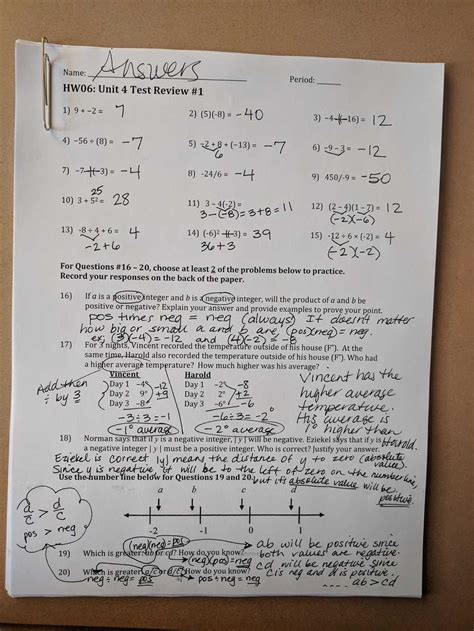 Name: Answers Period: ____
HW06: Unit 4 Test Review #1
1) 9 + −2 = 7 2) (5)(-8) = -40 3) −4−(−16) = 12
4) −56 ÷ (8) = -7 5) −2 + 8 + (−13) = -7 6) −9 − 3 = -12
6
7) −7−(−3) = -4 8) -24/6 = -4 9) 450/-9 = -50
25
10) 3 + 5² = 28 11) 3 – 4(-2) = 12) (2 −4)(1−7) = 12
3-(-8)=3+8=11 (-2)(-6)
13) −8 ÷ 4 + 6 = 4 14) (-6)² −(−3) = 39 15) -12 ÷ 6 × (−2) = 4
-2+6 36+3 (-2)(-2)
For Questions #16 – 20, choose at least 2 of the problems below to practice.
Record your responses on the back of the paper.
16) If a is a positive integer and b is a negative integer, will the product of a and b be
positive or negative? Explain your answer and provide examples to prove your point.
pos times neg = neg (always) It doesn't matter
how big or small a and b are, (pos)(neg) = neg.
ex, (3)(-4) = -12 and (4)(-2) = -8
17) For 3 nights, Vincent recorded the temperature outside of his house (F°). At the
same time, Harold also recorded the temperature outside of his house (F°). Who had
a higher average temperature? How much higher was his average?
Add then ÷ by 3
Vincent Harold
Day 1 -4° -12 Day 1 -2° -8
Day 2 9° +9 Day 2 2° +2
Day 3 -8° Day 3 -6° -6
-3÷3=-1 -6÷3=-2°
-1° average -2° average
Vincent has the
higher average
temperature.
His average is
1° higher than
Harold.
18) Norman says that if y is a negative integer, | y | will be negative. Eziekel says that if y is
a negative integer | y | must be a positive integer. Who is correct? Justify your answer.
Eziekel is correct |y| means the distance of y to zero (absolute value)
Since y is negative, it will be to the left of zero on the number line,
but it's absolute value will be positive.
Use the number line below for Questions 19 and 20.
a b c d
-2 -1 0 1
a/c > d/c
pos > neg
(neg)(neg)=pos
19) Which is greater: ab or cd? How do you know?
(neg)(pos)=neg
ab will be positive since
both values are negative.
cd will be negative since
c is neg and d is positive.
ab > cd
20) Which is greater: a/c or d/c? How do you know?
neg ÷ neg = pos pos ÷ neg = neg